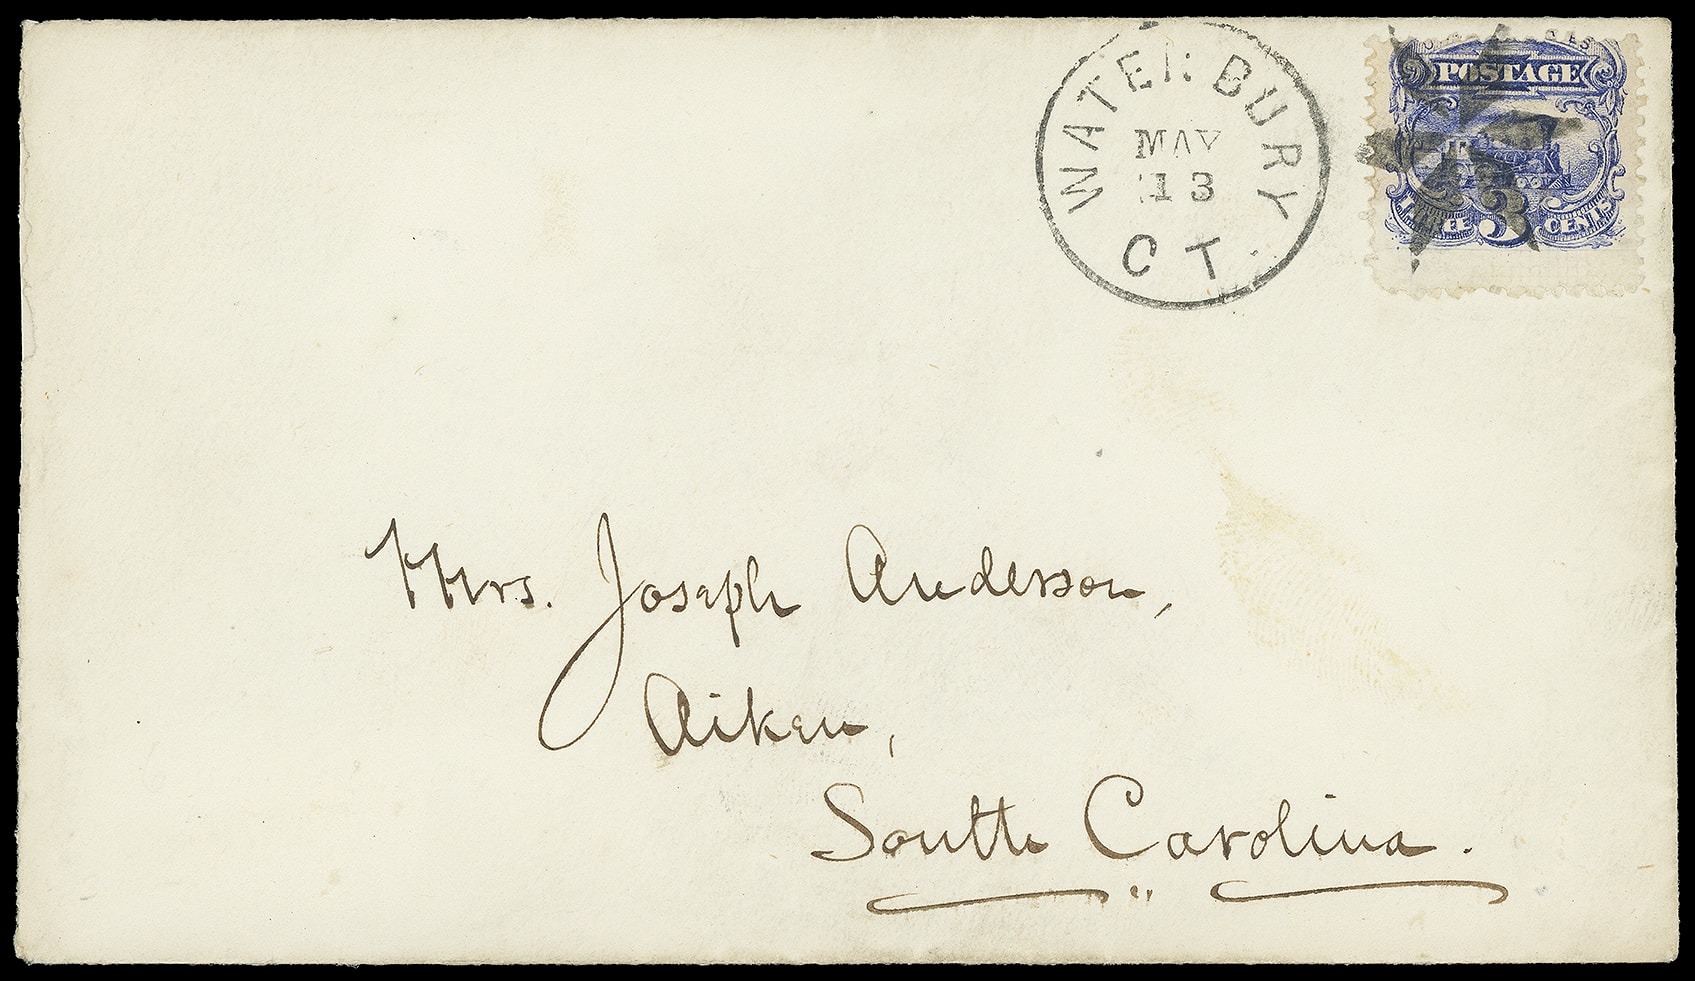 WATERBURY
MAY
13
CT.
POSTAGE
3 CENTS
Mrs. Joseph Anderson,
Aiken,
South Carolina.